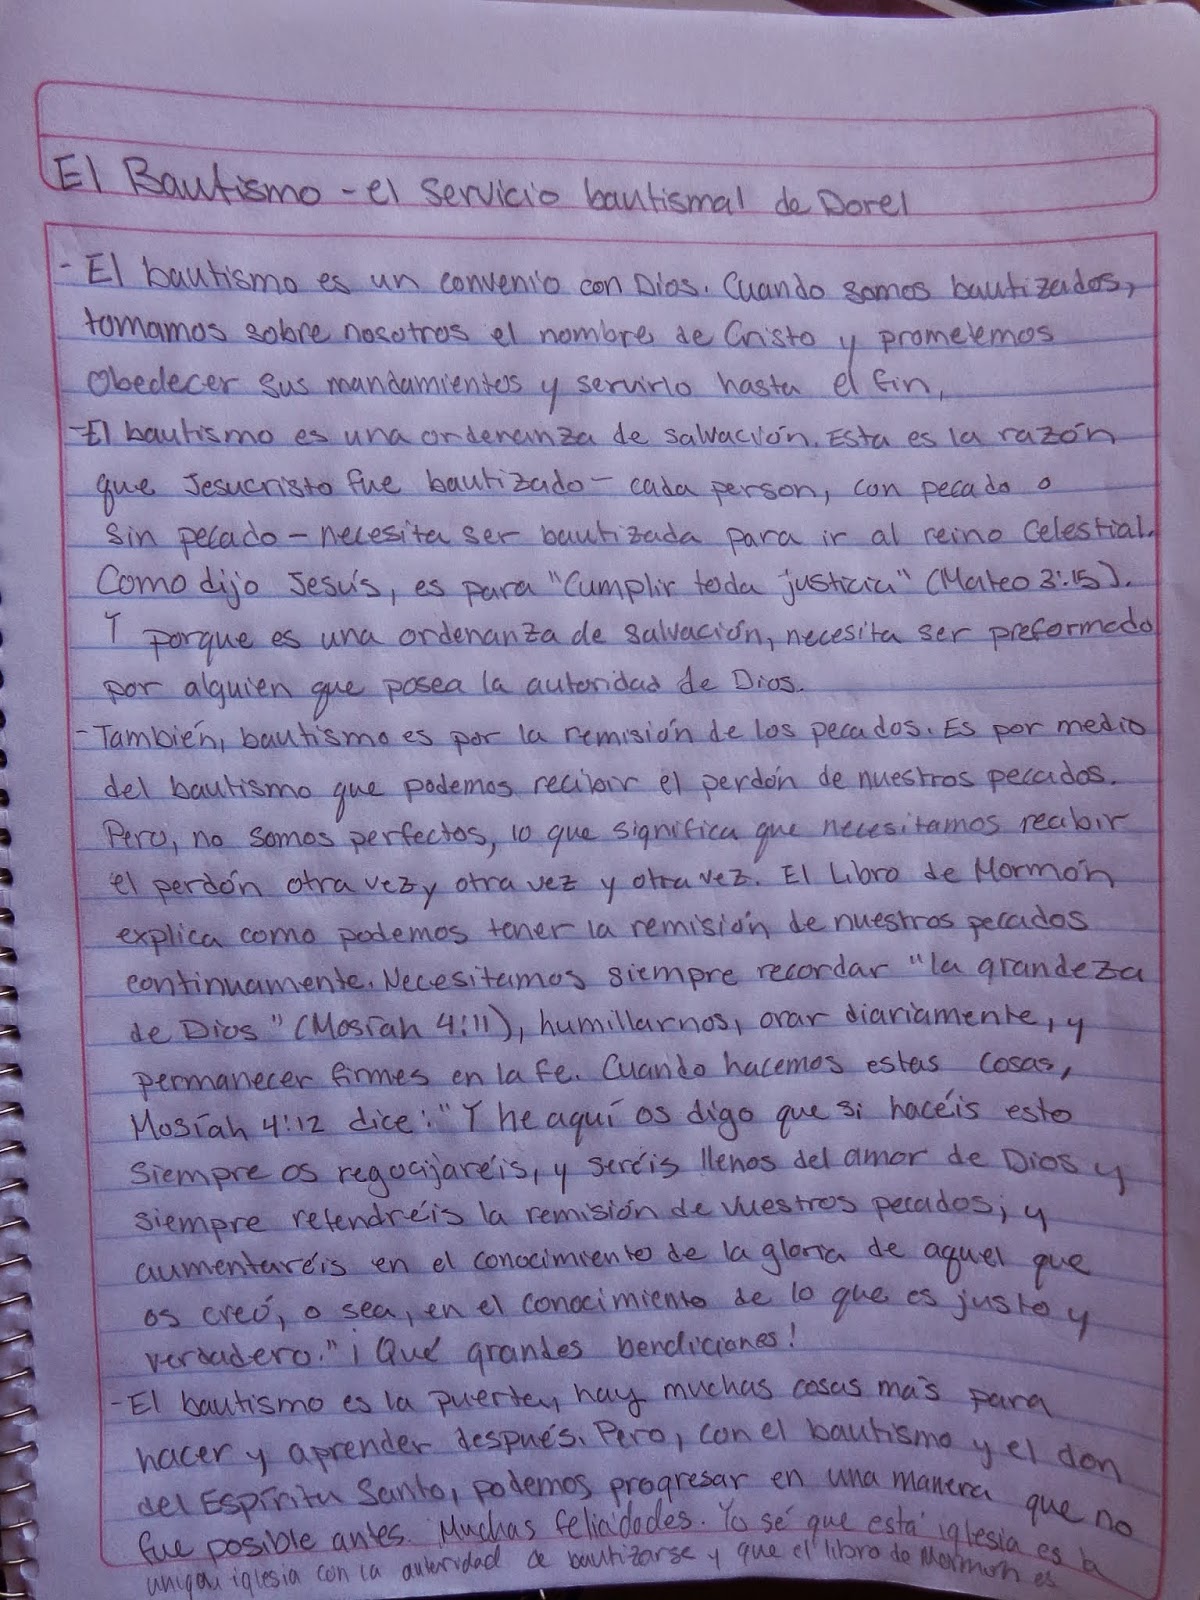 El Bautismo - el servicio bautismal de Dorel
- El bautismo es un convenio con Dios. Cuando somos bautizados,
tomamos sobre nosotros el nombre de Cristo y prometemos
obedecer sus mandamientos y servirlo hasta el fin.
- El bautismo es una ordenanza de salvación. Esta es la razón
que Jesucristo fue bautizado - cada person, con pecado o
sin pecado - necesita ser bautizada para ir al reino Celestial.
Como dijo Jesús, es para "Cumplir toda justicia" (Mateo 3:15).
Y porque es una ordenanza de salvación, necesita ser preformado
por alguien que posea la autoridad de Dios.
- También, bautismo es por la remisión de los pecados. Es por medio
del bautismo que podemos recibir el perdón de nuestros pecados.
Pero, no somos perfectos, lo que significa que necesitamos recibir
el perdón otra vez y otra vez y otra vez. El Libro de Mormón
explica como podemos tener la remisión de nuestros pecados
continuamente. Necesitamos siempre recordar "la grandeza
de Dios" (Mosíah 4:11), humillarnos, orar diariamente, y
permanecer firmes en la fe. Cuando hacemos estas cosas,
Mosíah 4:12 dice: "Y he aquí os digo que si hacéis esto
siempre os regocijaréis, y seréis llenos del amor de Dios y
siempre retendréis la remisión de vuestros pecados; y
aumentaréis en el conocimiento de la gloria de aquel que
os creó, o sea, en el conocimiento de lo que es justo y
verdadero." ¡Qué grandes bendiciones!
- El bautismo es la puerta, hay muchas cosas más para
hacer y aprender después. Pero, con el bautismo y el don
del Espíritu Santo, podemos progresar en una manera que no
fue posible antes. Muchas felicidades. Yo sé que está iglesia es la
iglesia con la autoridad de bautizarse y que el libro de Mormon es